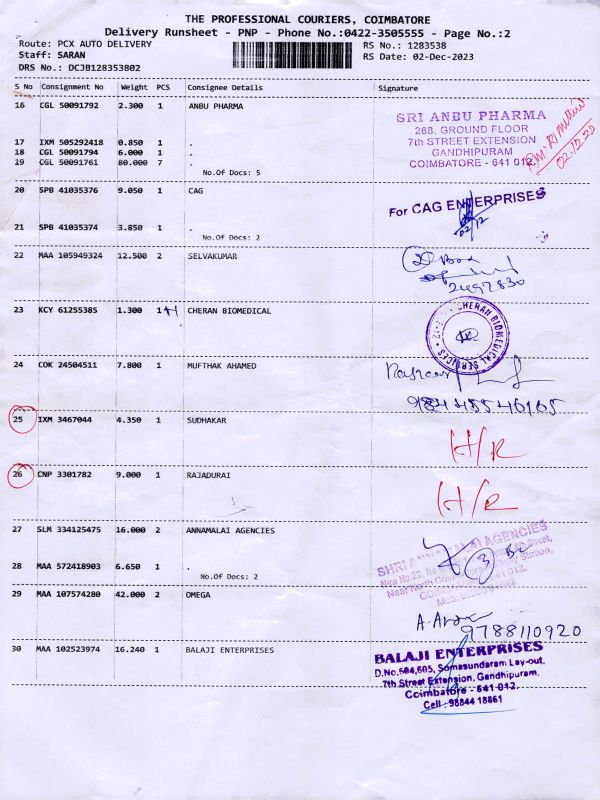 THE PROFESSIONAL COURIERS, COIMBATORE
Delivery Runsheet - PNP - Phone No.:0422-3505555 - Page No.:2
Route: PCX AUTO DELIVERY RS No.: 1283538
Staff: SARAN RS Date: 02-Dec-2023
DRS No.: DCJB128353802
S No Consignment No Weight PCS Consignee Details Signature
16 CGL 50091792 2.300 1 ANBU PHARMA
SRI ANBU PHARMA
268, GROUND FLOOR
7th STREET EXTENSION
GANDHIPURAM
COIMBATORE - 641 012.
17 IXM 505292418 0.850 1 .
18 CGL 50091794 6.000 1 .
19 CGL 50091761 80.000 7 .
No.Of Docs: 5
20 SPB 41035376 9.050 1 CAG
For CAG ENTERPRISES
02/12
21 SPB 41035374 3.850 1 .
No.Of Docs: 2
22 MAA 105949324 12.500 2 SELVAKUMAR
2 Box
23 KCY 61255385 1.300 1 +1 CHERAN BIOMEDICAL
CHERAN BIOMEDICAL SERVICES
24 COK 24504511 7.800 1 MUFTHAK AHAMED
25 IXM 3467044 4.350 1 SUDHAKAR
H/R
26 CNP 3301782 9.000 1 RAJADURAI
H/R
27 SLM 334125475 16.000 2 ANNAMALAI AGENCIES
SHRI ANNAMALAI AGENCIES
3
28 MAA 572418903 6.650 1 .
No.Of Docs: 2
29 MAA 107574280 42.000 2 OMEGA
9788110920
30 MAA 102523974 16.240 1 BALAJI ENTERPRISES
BALAJI ENTERPRISES
D.No.604,605, Somasundaram Lay-out,
7th Street Extension, Gandhipuram,
Coimbatore - 641 012.
Cell : 98844 18861